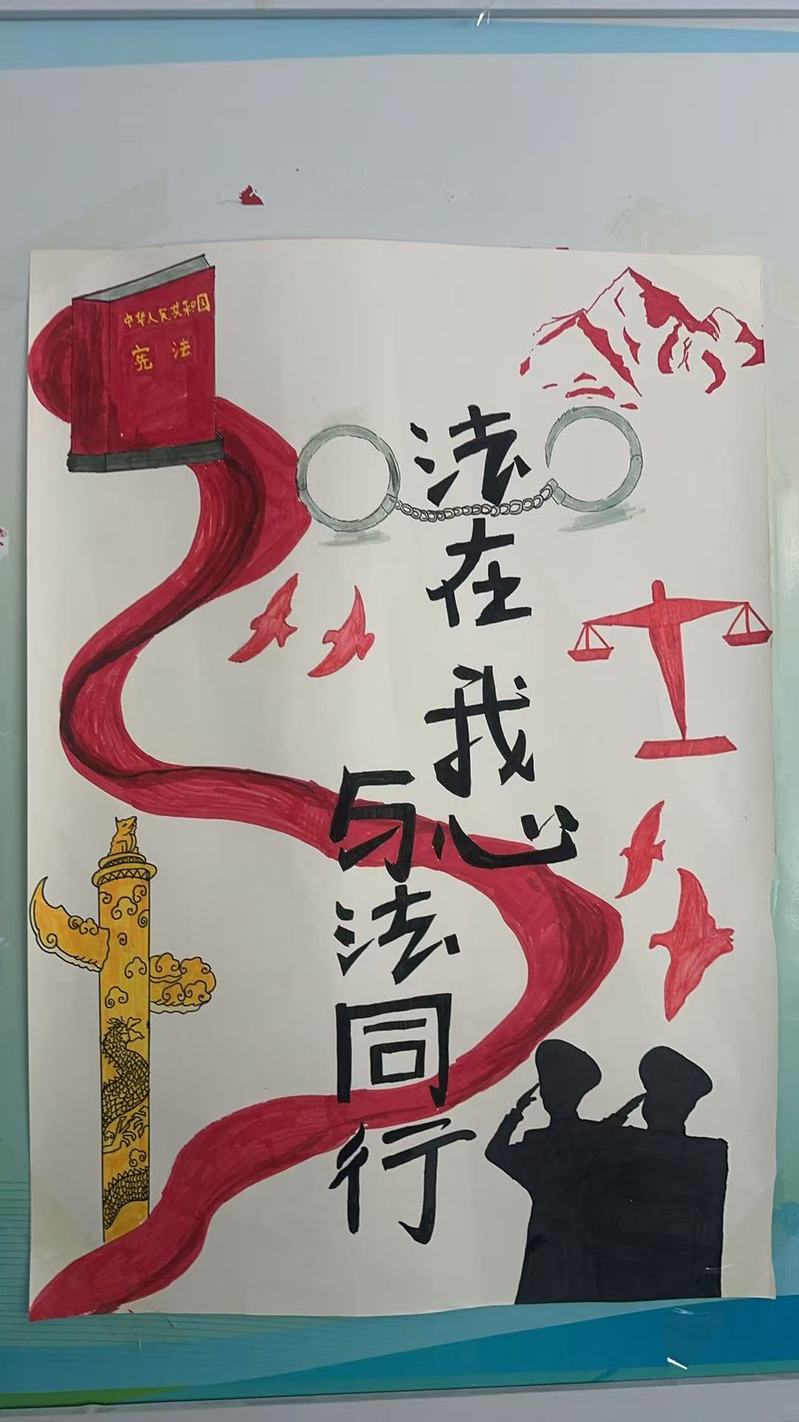 中华人民共和国
宪法
法在我心
与法同行